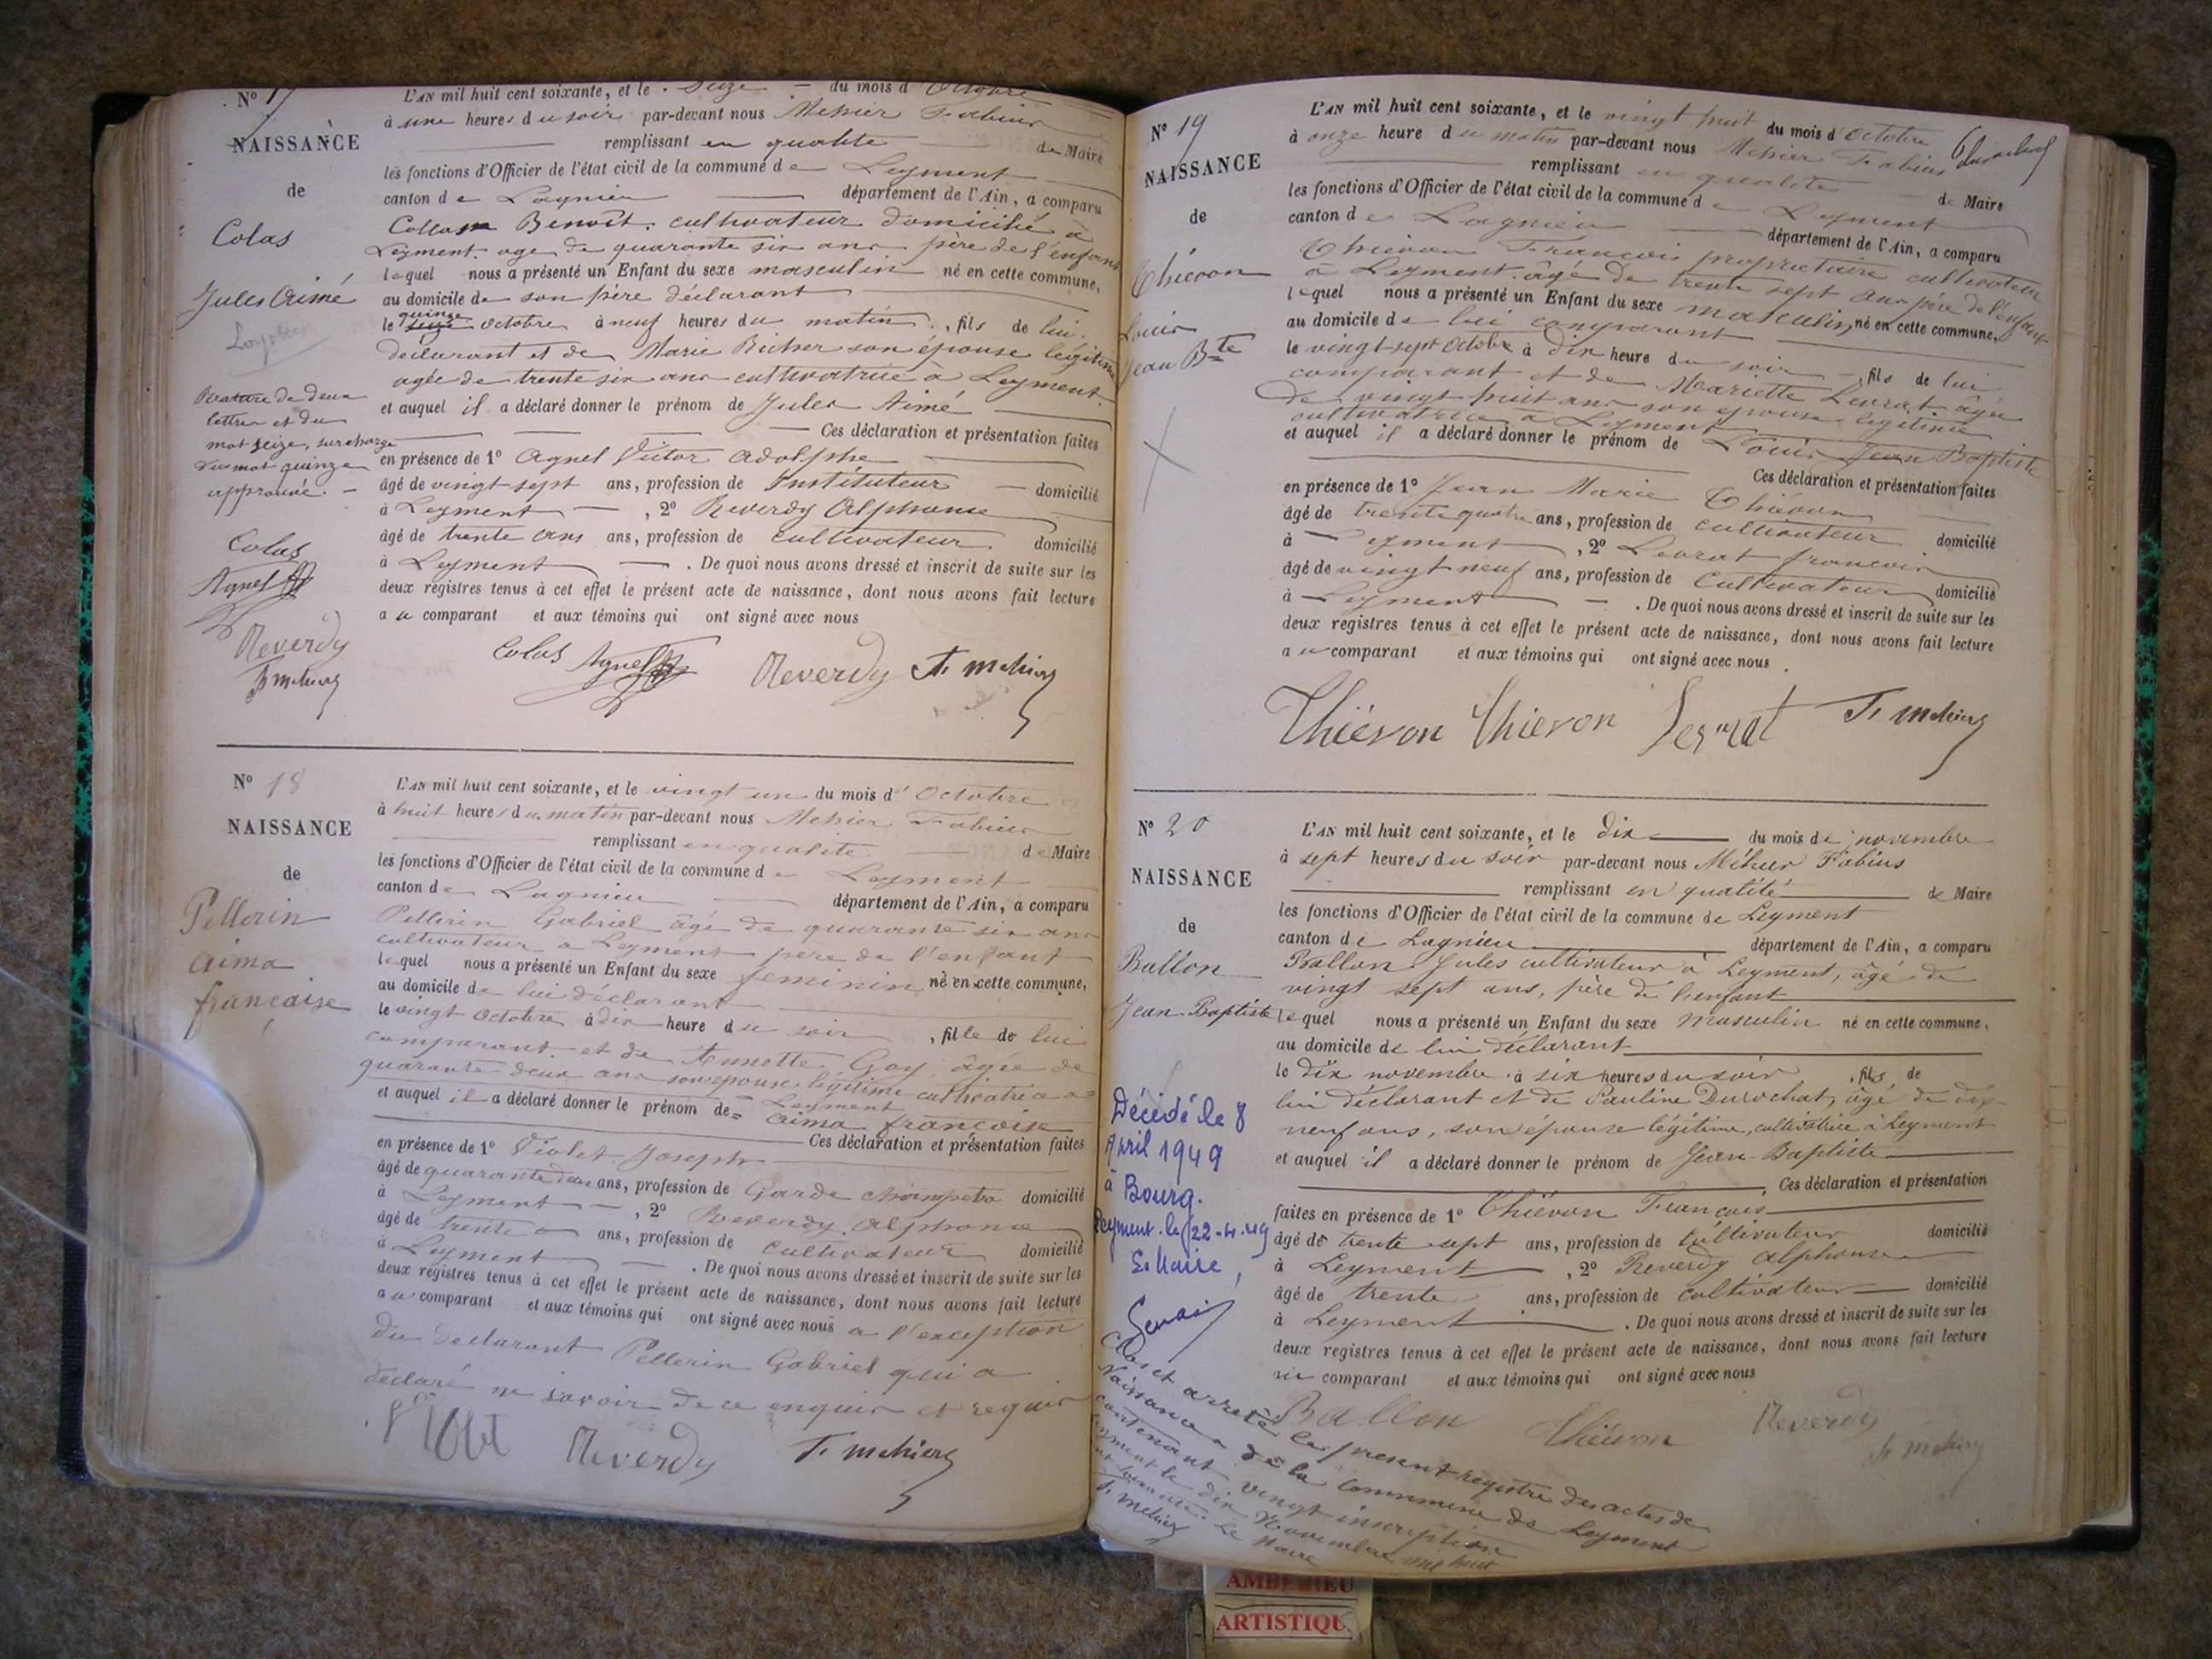 N° 17
NAISSANCE
de
Colas
Jules Aimé
Rature de deux
lettres et du
mot seize, surcharge
du mot quinze
approuvé. —
Colas
Agnel
Reverdy
F. Mehier
L'AN mil huit cent soixante, et le seize du mois d'Octobre
à une heures du soir par-devant nous Mehier Fabius
remplissant en qualité de Maire
les fonctions d'Officier de l'état civil de la commune de Leyment
canton de Lagnieu département de l'Ain, a comparu
Benoît, cultivateur domicilié à
Leyment, age de quarante six ans père de l'enfant
lequel nous a présenté un Enfant du sexe masculin né en cette commune,
au domicile de son père déclarant
quinze
le seize octobre à neuf heures du matin, fils de lui
déclarant et de Marie son épouse légitime
agée de trente six ans cultivatrice à Leyment.
et auquel il a déclaré donner le prénom de Jules Aimé
Ces déclaration et présentation faites
en présence de 1° Agnel Victor Adolphe
âgé de vingt sept ans, profession de Instituteur domicilié
à Leyment, 2° Reverdy Alphonse
âgé de trente ans ans, profession de cultivateur domicilié
à Leyment. De quoi nous avons dressé et inscrit de suite sur les
deux registres tenus à cet effet le présent acte de naissance, dont nous avons fait lecture
au comparant et aux témoins qui ont signé avec nous
Colas Agnel Reverdy F. Mehier
N° 18
NAISSANCE
de
Pellerin
Aima
françoise
L'AN mil huit cent soixante, et le vingt un du mois d'Octobre
à huit heures du matin par-devant nous Mehier Fabius
remplissant en qualité de Maire
les fonctions d'Officier de l'état civil de la commune de Leyment
canton de Lagnieu département de l'Ain, a comparu
Pellerin Gabriel âgé de quarante six ans
cultivateur a Leyment père de l'enfant
lequel nous a présenté un Enfant du sexe feminin né en cette commune,
au domicile de lui déclarant
le vingt Octobre à dix heure du soir, fille de lui
comparant et de Annette Goy, âgée de
quarante deux ans son épouse légitime cultivatrice a
Leyment
et auquel il a déclaré donner le prénom de Aima françoise
Ces déclaration et présentation faites
en présence de 1° Violet Joseph
âgé de quarante deux ans, profession de Garde champetre domicilié
à Leyment, 2° Reverdy Alphonse
âgé de trente ans, profession de cultivateur domicilié
à Leyment. De quoi nous avons dressé et inscrit de suite sur les
deux registres tenus à cet effet le présent acte de naissance, dont nous avons fait lecture
au comparant et aux témoins qui ont signé avec nous a l'exception
du déclarant Pellerin Gabriel qui a
déclaré ne savoir de ce enquis et requis
Violet Reverdy F. Mehier
N° 19
NAISSANCE
de
Thiévon
Louis
Jean Bte
L'AN mil huit cent soixante, et le vingt huit du mois d'Octobre
à onze heure du matin par-devant nous Mehier Fabius
remplissant en qualité de Maire
les fonctions d'Officier de l'état civil de la commune de Leyment
canton de Lagnieu département de l'Ain, a comparu
Thiévon François propriétaire cultivateur
à Leyment, âgé de trente sept ans père de l'enfant
lequel nous a présenté un Enfant du sexe masculin, né en cette commune,
au domicile de lui comparant
le vingt sept Octobre à dix heure du soir, fils de lui
comparant et de Mariette Levrat âgée
de vingt huit ans son epouse legitime
cultivatrice à Leyment
et auquel il a déclaré donner le prénom de Louis Jean Baptiste
Ces déclaration et présentation faites
en présence de 1° Jean Marie Thiévon
âgé de trente quatre ans, profession de cultivateur domicilié
à Leyment, 2° Levrat françois
âgé de vingt neuf ans, profession de Cultivateur domicilié
à Leyment. De quoi nous avons dressé et inscrit de suite sur les
deux registres tenus à cet effet le présent acte de naissance, dont nous avons fait lecture
au comparant et aux témoins qui ont signé avec nous.
Thiévon Thievon Levrat F. Mehier
N° 20
NAISSANCE
de
Ballon
Jean-Baptiste
Décédé le 8
Avril 1949
à Bourg.
Leyment le 22-4-49
Le Maire,
L'AN mil huit cent soixante, et le dix du mois de novembre
à sept heures du soir par-devant nous Méhier Fabius
remplissant en qualité de Maire
les fonctions d'Officier de l'état civil de la commune de Leyment
canton de Lagnieu département de l'Ain, a comparu
Ballon Jules cultivateur à Leyment, âgé de
vingt sept ans, père de l'enfant
lequel nous a présenté un Enfant du sexe masculin né en cette commune,
au domicile de lui déclarant
le dix novembre à six heures du soir, fils de
lui déclarant et de Pauline Durochat, âgé de dix-
neuf ans, son épouse légitime, cultivatrice à Leyment
et auquel il a déclaré donner le prénom de Jean-Baptiste
Ces déclaration et présentation
faites en présence de 1° Thiévon François
âgé de trente sept ans, profession de Cultivateur domicilié
à Leyment, 2° Reverdy Alphonse
âgé de trente ans, profession de cultivateur domicilié
à Leyment. De quoi nous avons dressé et inscrit de suite sur les
deux registres tenus à cet effet le présent acte de naissance, dont nous avons fait lecture
au comparant et aux témoins qui ont signé avec nous
Ballon Thiévon Reverdy F. Mehier
Clos et arreté le present registre des actes de
Naissance de la commune de Leyment
contenant vingt inscription
Leyment le dix Novembre mil huit
cent soixante. Le Maire
F. Mehier
AMBERIEU
ARTISTIQU